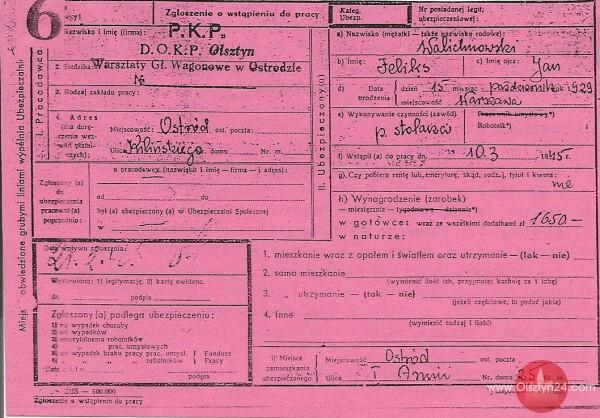 6
Zgłoszenie o wstąpieniu do pracy
Kateg. Ubezp.
Nr posiadanej legit. ubezpieczeniowej:
Miejsca obwiedzione grubymi liniami wypełnia Ubezpieczalnia
I. Pracodawca
Nazwisko i Imię (firma):
P.K.P.
D.O.K.P. Olsztyn
2. Siedziba
Warsztaty Gł. Wagonowe w Ostródzie
№
3. Rodzaj zakładu pracy:
4. Adres (dla doręczenia wezwań płatniczych):
Miejscowość Ostród ost. poczta:
Ulica Kilińskiego Nr domu Nr m.
Zgłoszony (a) do ubezpieczenia pracowni (a) poprzednio:
u pracodawcy (nazwisko i imię — firma — i adres):
od do
był (a) ubezpieczony (a) w Ubezpieczalni Społecznej
w od do
Data wpływu zgłoszenia:
Wystawiono: 1) legitymację, 2) kartę ewidenc.
dn. podpis
Zgłoszony (a) podlega ubezpieczeniu:
1) na wypadek choroby
2) od wypadków
3) emerytalnemu robotników
4) prac. umysłowych
na wypadek braku pracy prac. umysł. Fundusz
robotników Pracy
podpis
ZUS — 500.000
Zgłoszenie o wstąpieniu do pracy
II. Ubezpieczony(a)
a) Nazwisko (mężatki — także nazwisko rodowe):
Walichnowski
b) Imię: Feliks
c) Imię ojca: Jan
d) Data urodzenia
dzień 15 miesiąc październik rok 1929
miejscowość Warszawa
e) Wykonywane czynności (zawód)
p. stolarza
Pracownik umysłowy*)
Robotnik*)
f) Wstąpił (a) do pracy dn. 10.3 1945 r.
g) Czy pobiera rentę lub emeryturę, skąd, rodz., tytuł i kwota:
nie
h) Wynagrodzenie (zarobek)
— miesięcznie — tygodniowo — dziennie*)
w gotówce: wraz ze wszelkimi dodatkami zł 1650-
w naturze:
1. mieszkanie wraz z opałem i światłem oraz utrzymanie — (tak — nie)
2. samo mieszkanie
(wymienić ilość izb, przyjmując kuchnię za 1 izbę)
3. „ utrzymanie — (tak — nie)
(jeżeli częściowe, to podać jakie)
4. Inne
(wymienić rodzaj i ilość)
i) Miejsce zamieszkania ubezpieczonego
Miejscowość Ostród ost. poczta:
Ulica I Armii Nr domu 25 Nr m.
www.Olsztyn24.com